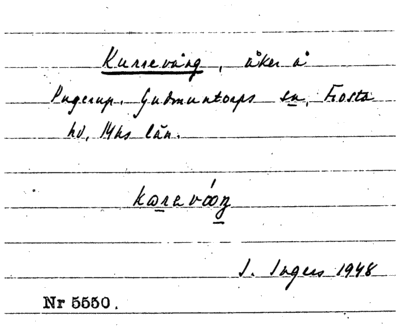 Kurrevång, åker å
Pugerup. Gudmuntorps sn, Frosta
hd, Mhs län.
I. Ingers 1948
Nr 5550.